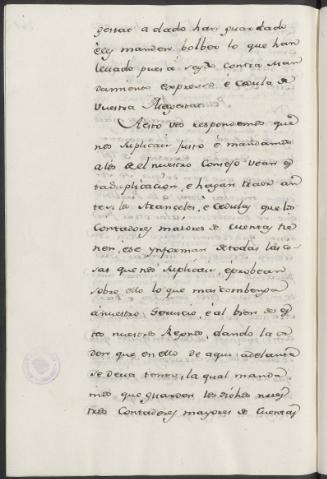 gestat a dado han guardado
é les manden bolber lo que han
lleuado pues á seydo contra Man
damiento expreso é Cedula de
Vuestra Magestad.
Aesto vos respondemos que
nos Suplicais justo é mandamos
alos del nuestro Consejo vean es
ta suplicacion, é hagan traer an
te si los Aranceles, é Cedulas que los
Contadores maiores de Cuentas tie
nen, é se ynforman de todas las co
sas que nos Suplicais, é probean
sobre ello lo que mas combenga
á nuestro Seruicio, é al bien de es
tos nuestros Reynos, dando la or
den que en ello de aqui adelante
se deua tener, la qual manda
mos que guarden los dichos nues
tros Contadores mayores de Cuentas